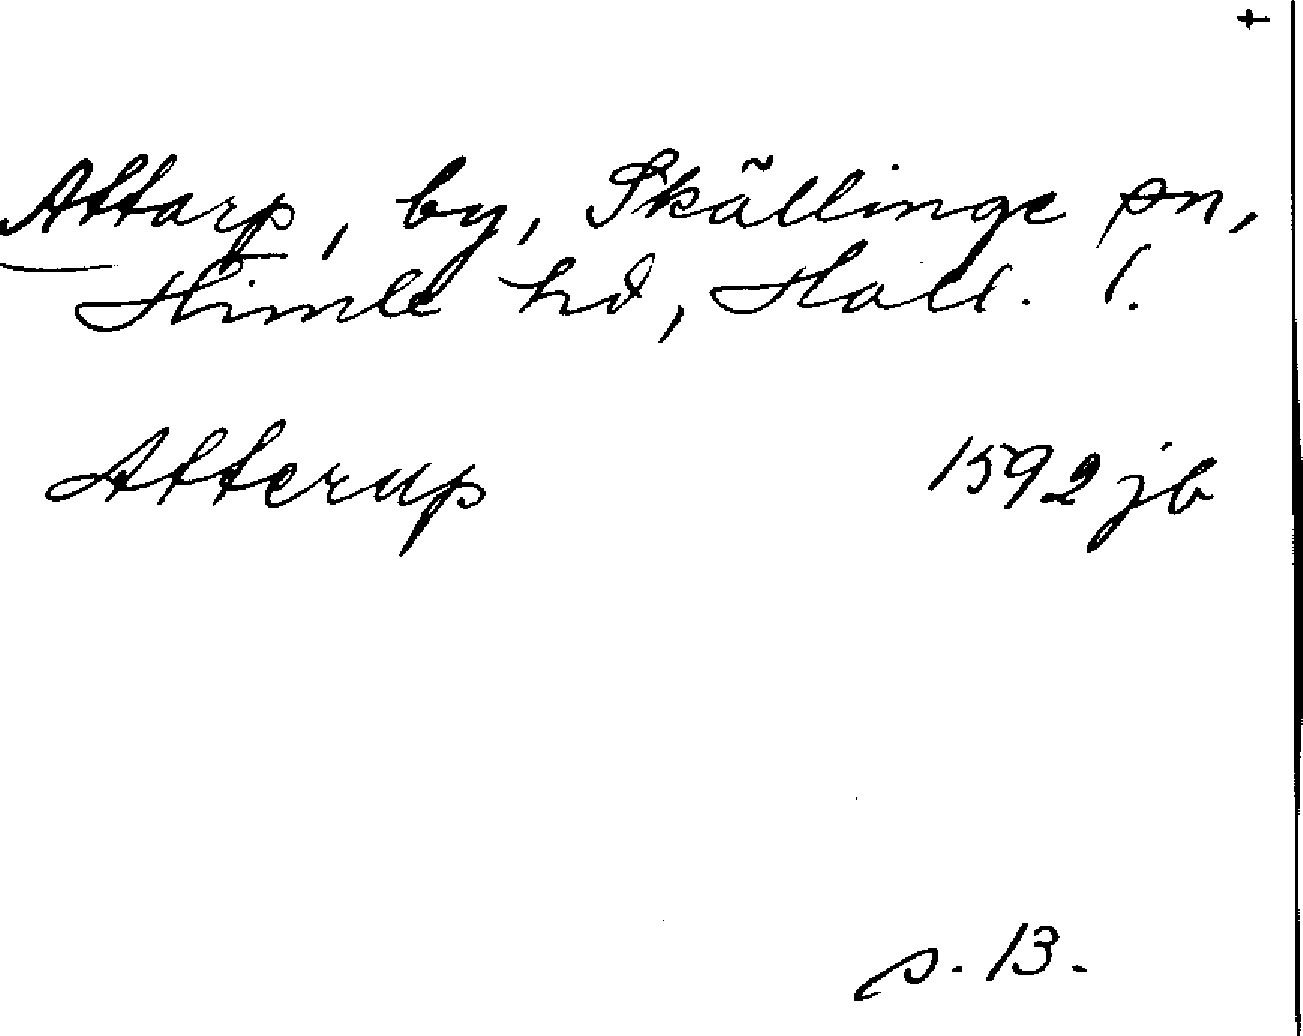 Attarp, by, Skällinge sn,
Himle hd, Hall. l.
Atterup 1592 jb
s. 13.